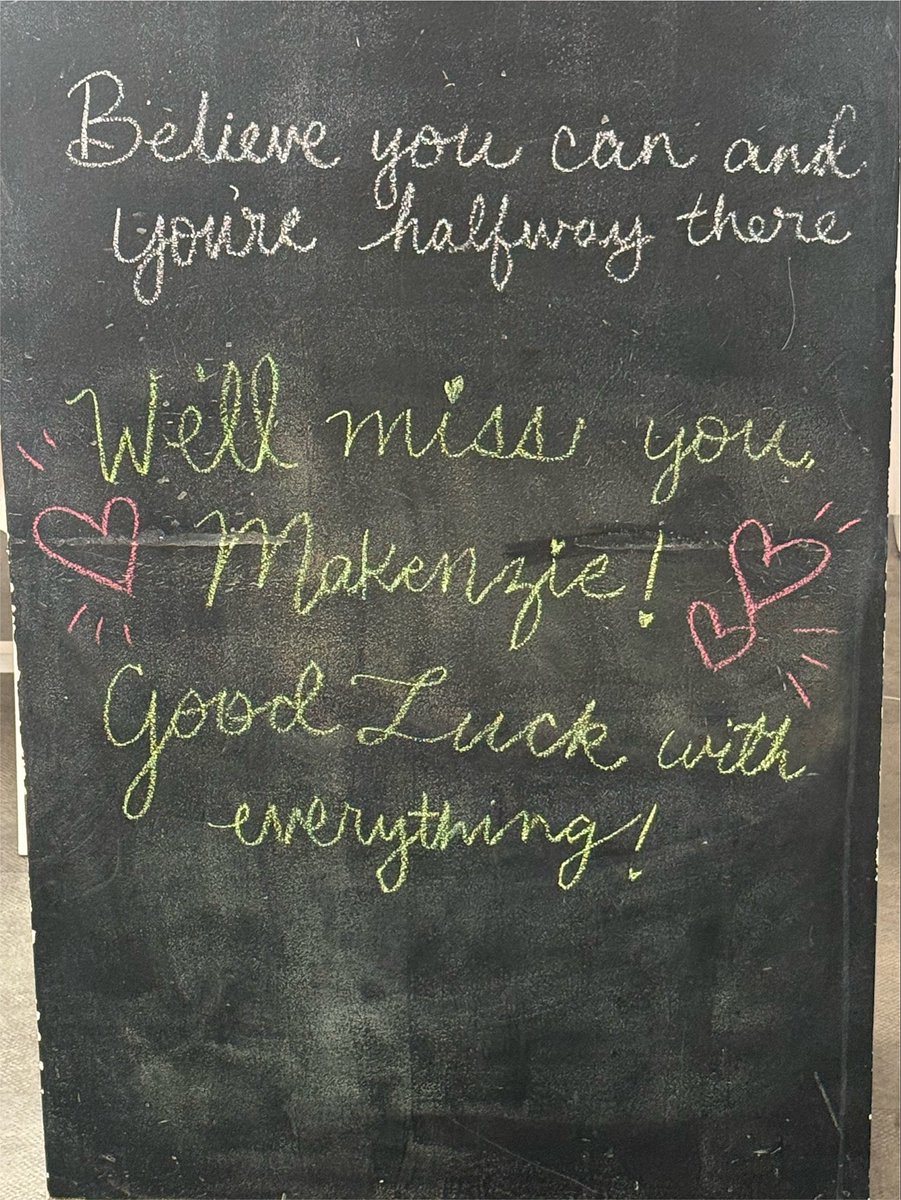 Believe you can and
you're halfway there
We'll miss you,
Makenzie!
Good Luck with
everything!